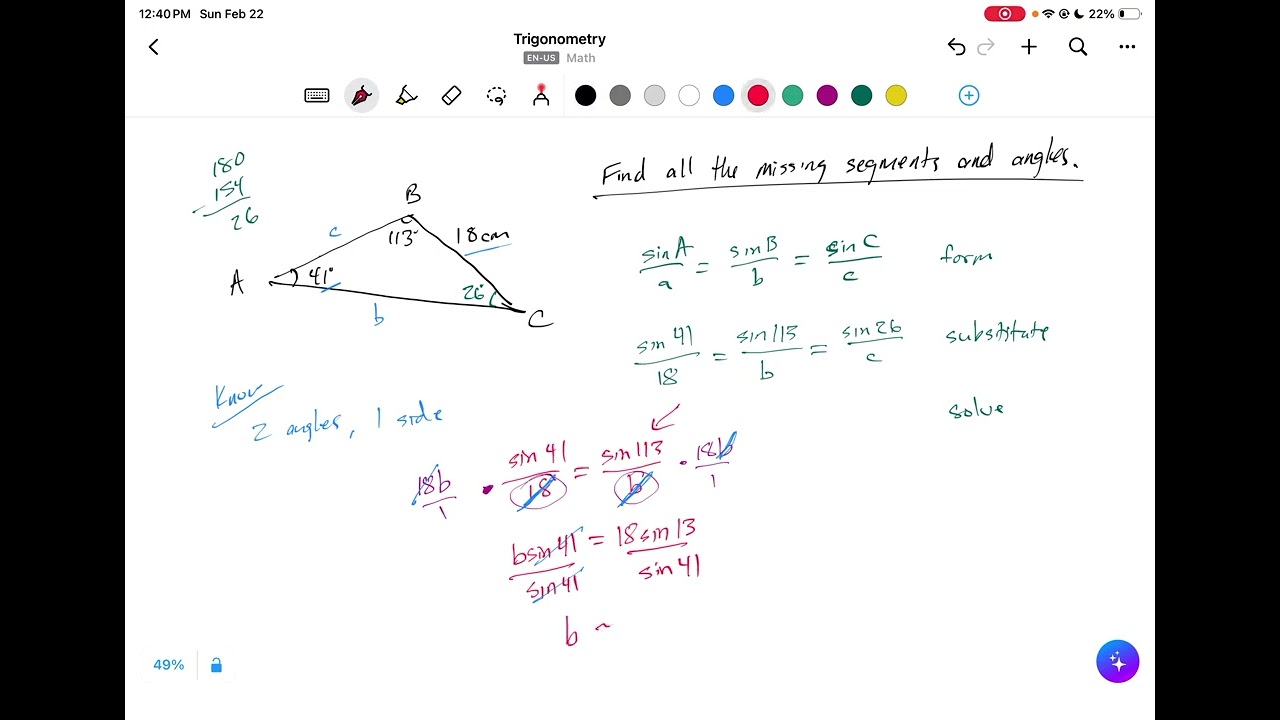 12:40 PM Sun Feb 22
22%
Trigonometry
EN-US Math
180
154
26
Find all the missing segments and angles.
B
c
113°
18cm
A
41°
26°
b
C
sinA/a = sinB/b = sinC/c form
sin 41/18 = sin 113/b = sin 26/c substitute
solve
Know
2 angles, 1 side
18b/1 • sin 41/18 = sin 113/b • 18b/1
bsin 41/sin 41 = 18 sin 13/sin 41
b ~
49%